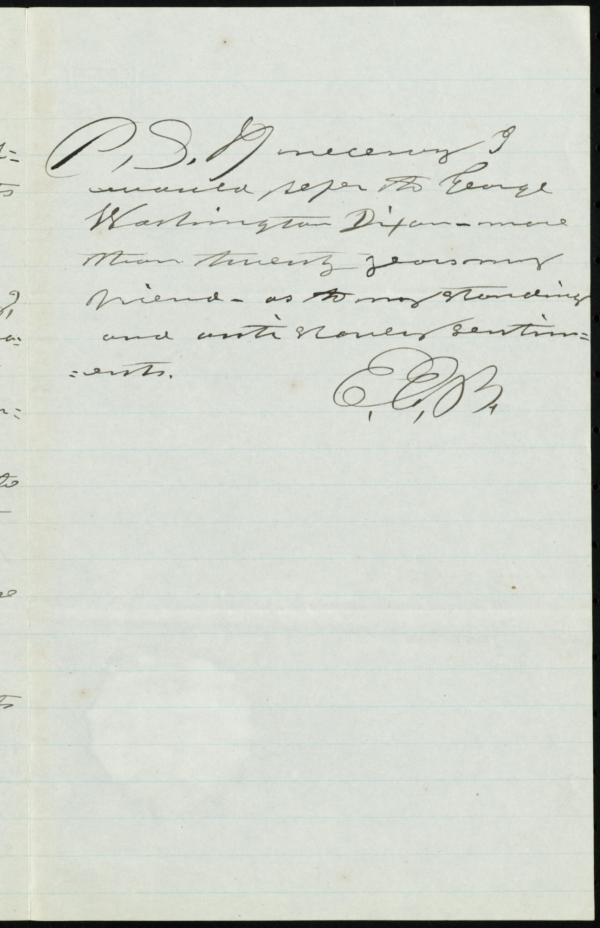 P.S. If necessary I
would refer to George
Washington Dixon - more
than twenty years my
friend - as to my standing
and anti slavery sentim=
=ents.
E.C.B.